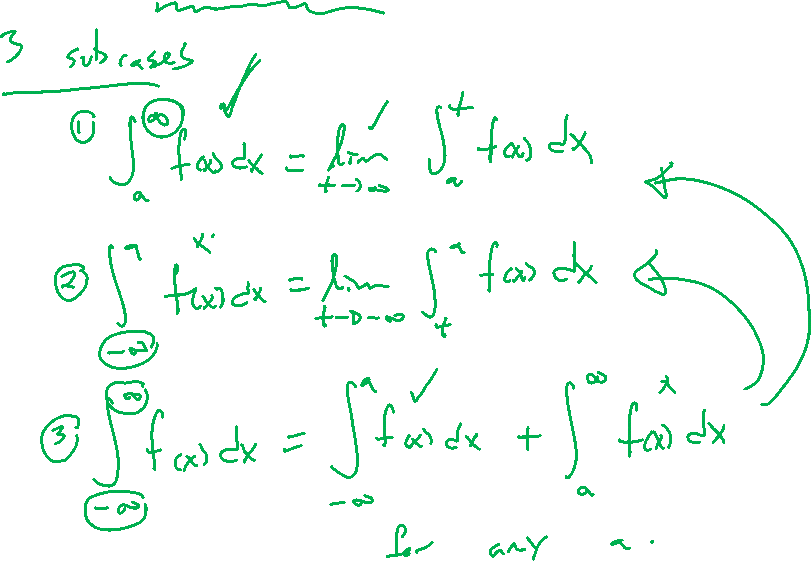 3 subcases
① ∫_a^∞ f(x) dx = lim_{t→∞} ∫_a^t f(x) dx
② ∫_{-∞}^a f(x) dx = lim_{t→-∞} ∫_t^a f(x) dx
③ ∫_{-∞}^∞ f(x) dx = ∫_{-∞}^a f(x) dx + ∫_a^∞ f(x) dx
for any a.